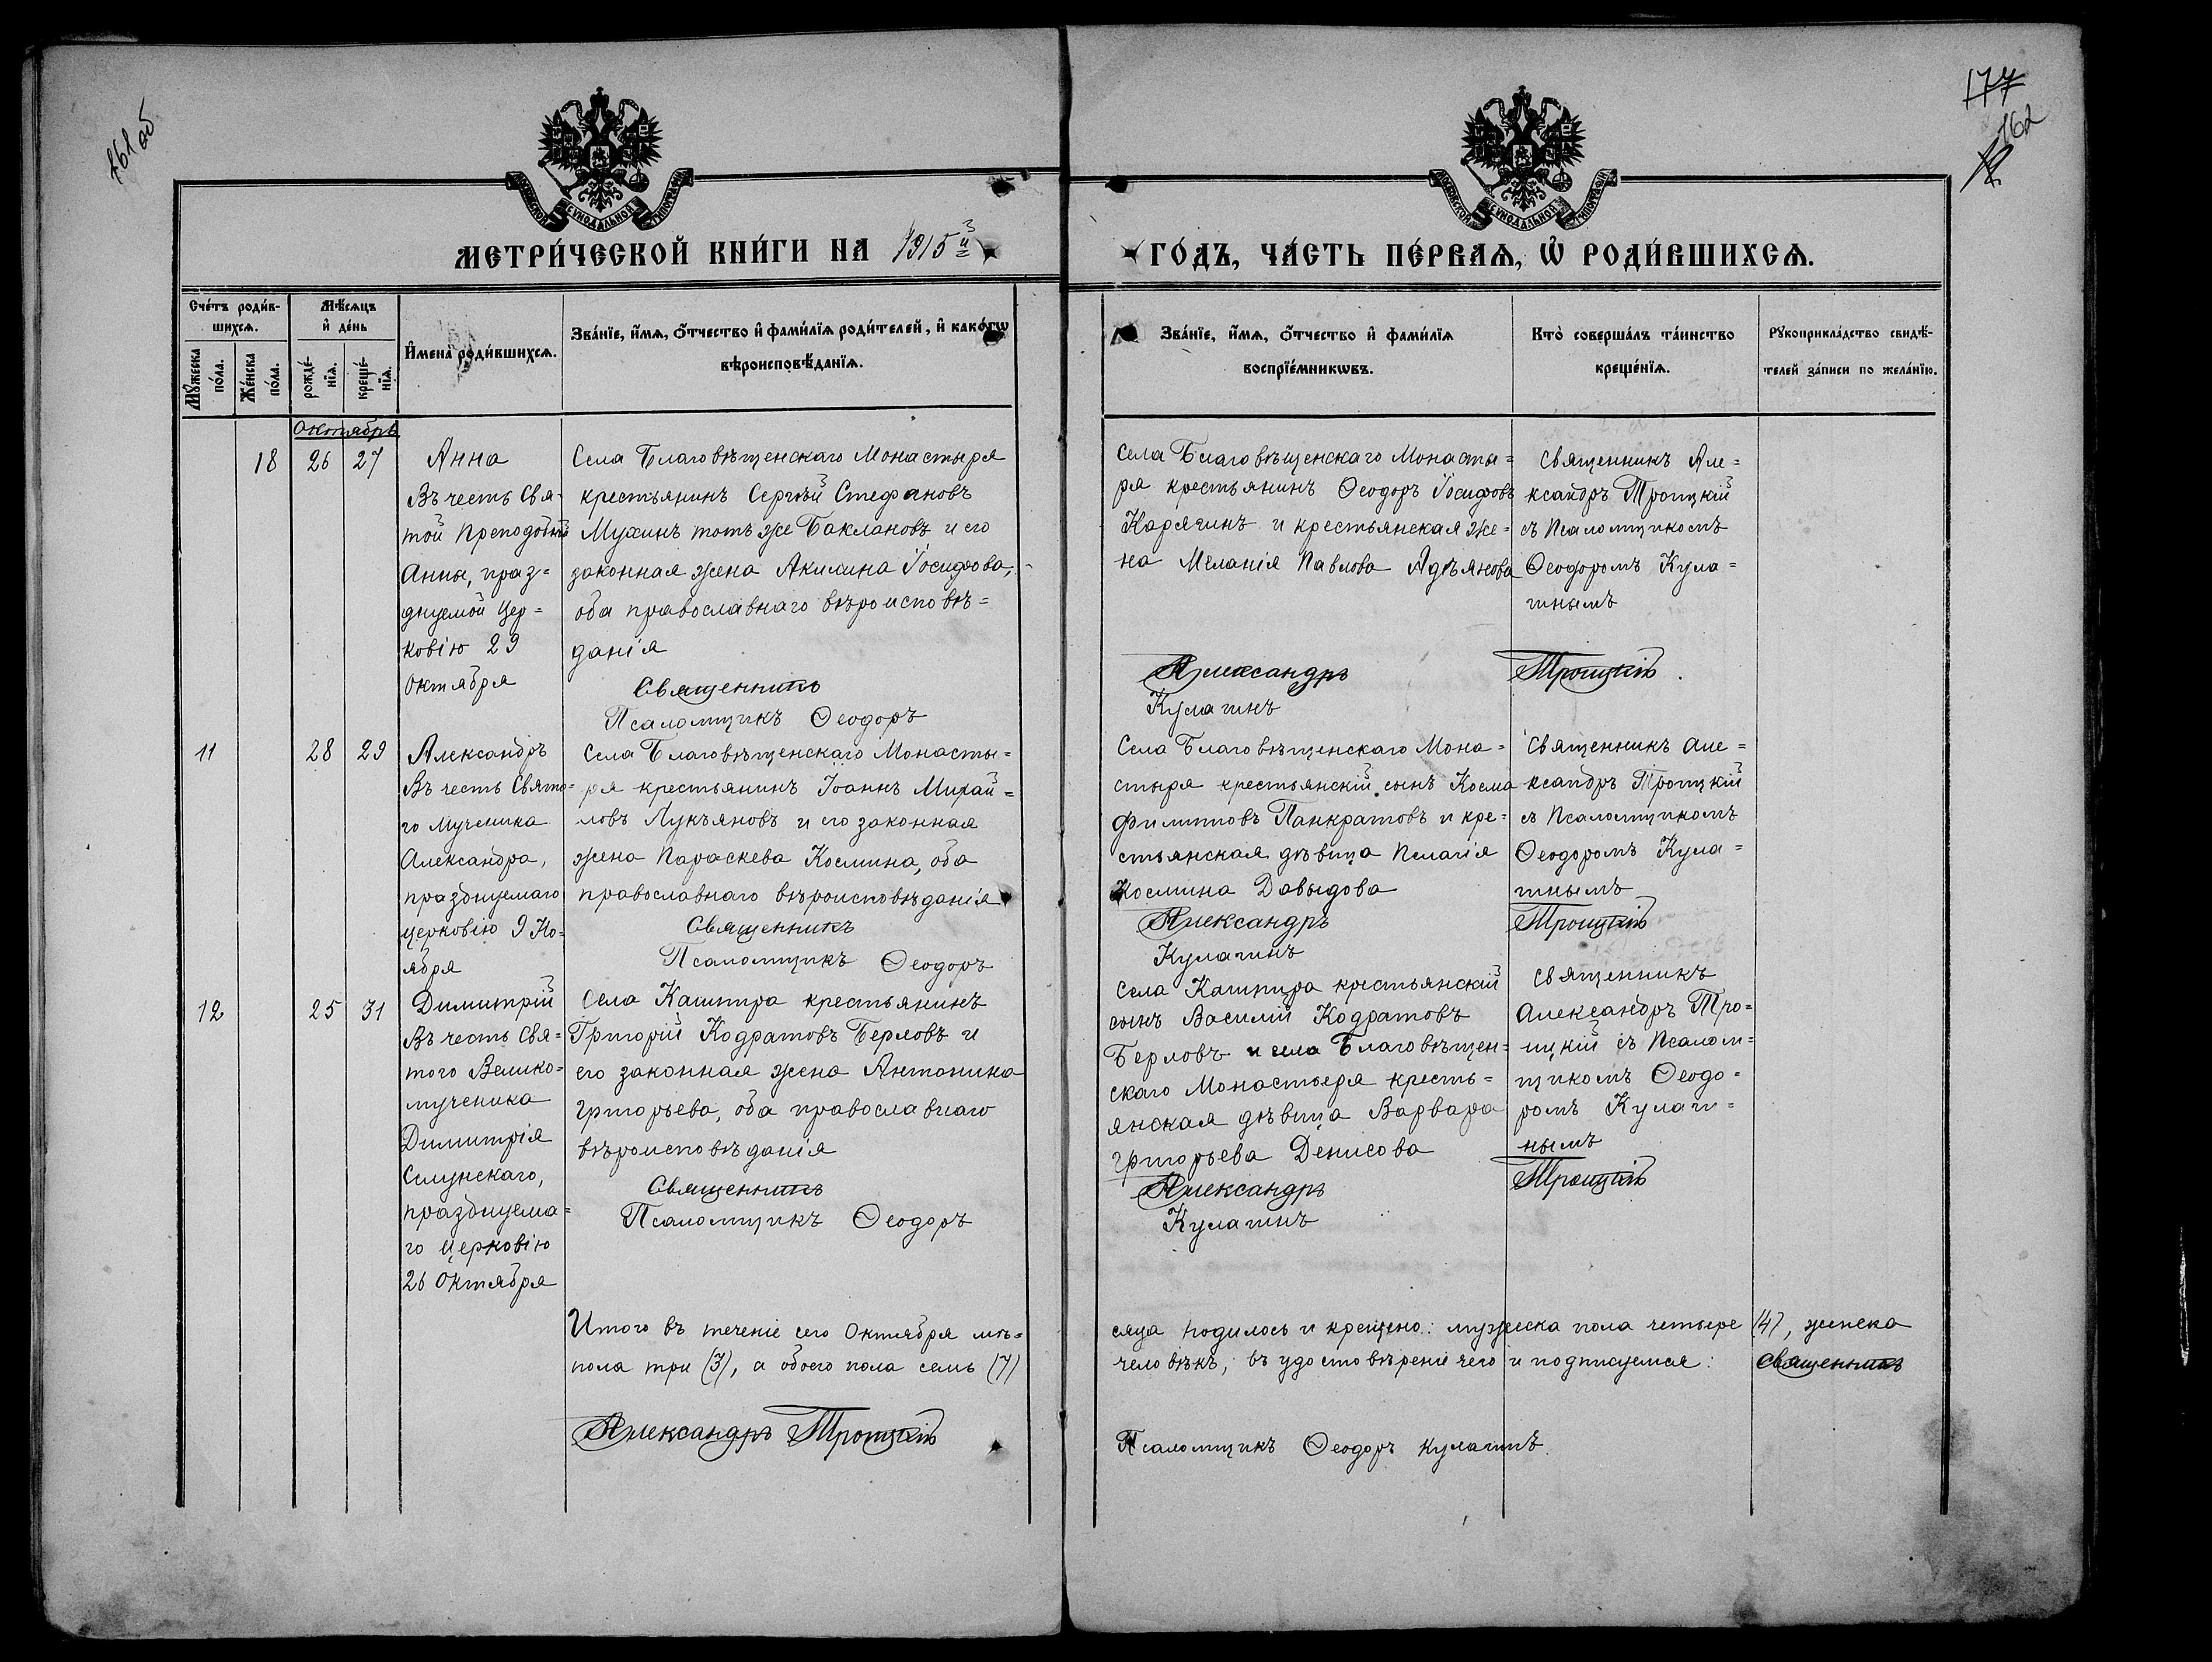 161 об
177
162
МОСКОВСКОЙ СѴНОДАЛЬНОЙ ТИПОГРАФІИ
МОСКОВСКОЙ СѴНОДАЛЬНОЙ ТИПОГРАФІИ
МЕТРИ́ЧЕСКОЙ КНИ́ГИ НА 1915й
ГО́ДЪ, ЧА́СТЬ ПЕ́РВАѦ, Ѡ РОДИ́ВШИХСѦ.
Сче́тъ роди́в-
шихсѧ.
Мꙋ́жеска по́ла.
Же́нска по́ла.
Мѣ́сѧцъ
и҆ де́нь
рожде́-
нїѧ.
креще́-
нїѧ.
И҆мена̀ роди́вшихсѧ.
Зва́нїе, и҆́мѧ, ѻ҆́тчество и҆ фами́лїѧ роди́телей, и҆ како́гѡ
вѣроисповѣ́данїѧ.
Зва́нїе, и҆́мѧ, ѻ҆́тчество и҆ фами́лїѧ
воспрїе́мникѡвъ.
Кто̀ соверша́лъ та́инство
креще́нїѧ.
Рꙋкоприкла́дство свидѣ́-
телей за́писи по жела́нїю.
Октябрь
18 26 27
Анна
Въ честь Свя-
той Преподобной
Анны, праз=
днуемой Цер=
ковію 29
Октября
Села Благовѣщенскаго Монастыря
крестьянинъ Сергѣй Стефановъ
Мухинъ тотъ же Баклановъ и его
законная жена Акилина Іосифова,
оба православнаго вѣроисповѣ=
данія
Священникъ
Псаломщикъ Ѳеодоръ
Села Благовѣщенскаго Монасты=
ря крестьянинъ Ѳеодоръ Іосифовъ
Карягинъ и крестьянская же=
на Меланія Павлова Адѣянова
Александръ
Кулагинъ
Священникъ Але=
ксандръ Троицкій
съ Псаломщикомъ
Ѳеодоромъ Кула=
гинымъ
Троицкій
11 28 29
Александръ
Въ честь Свято=
го Мученика
Александра,
празднуемаго
церковію 9 Но=
ября
Села Благовѣщенскаго Монасты=
ря крестьянинъ Іоаннъ Михай=
ловъ Лукъяновъ и его законная
жена Параскева Космина, оба
православнаго вѣроисповѣданія
Священникъ
Псаломщикъ Ѳеодоръ
Села Благовѣщенскаго Мона=
стыря крестьянскій сынъ Косма
Филипповъ Панкратовъ и кре=
стьянская дѣвица Пелагія
Космина Давыдова
Александръ
Кулагинъ
Священникъ Але=
ксандръ Троицкій
съ Псаломщикомъ
Ѳеодоромъ Кула=
гинымъ
Троицкій
12 25 31
Димитрій
Въ честь Свя=
того Велико=
мученика
Димитрія
Селунскаго,
празднуема=
го Церковію
26 Октября
Села Кашпира крестьянинъ
Григорій Кодратовъ Берловъ и
его законная жена Антонина
Григорьева, оба православнаго
вѣроисповѣданія
Священникъ
Псаломщикъ Ѳеодоръ
Села Кашпира крестьянскій
сынъ Василій Кодратовъ
Берловъ и села Благовѣщен=
скаго Монастыря кресть=
янская дѣвица Варвара
Григорьева Денисова
Александръ
Кулагинъ
Священникъ
Александръ Тро=
ицкій съ Псалом=
щикомъ Ѳеодо=
ромъ Кулаги=
нымъ
Троицкій
Итого въ теченіе сего Октября мѣ=
сяца родилось и крещено: мужеска пола четыре (4), женска
пола три (3), а обоего пола семь (7)
человѣкъ, въ удостовѣреніе чего и подписуемся: Священникъ
Александръ Троицкій
Псаломщикъ Ѳеодоръ Кулагинъ.